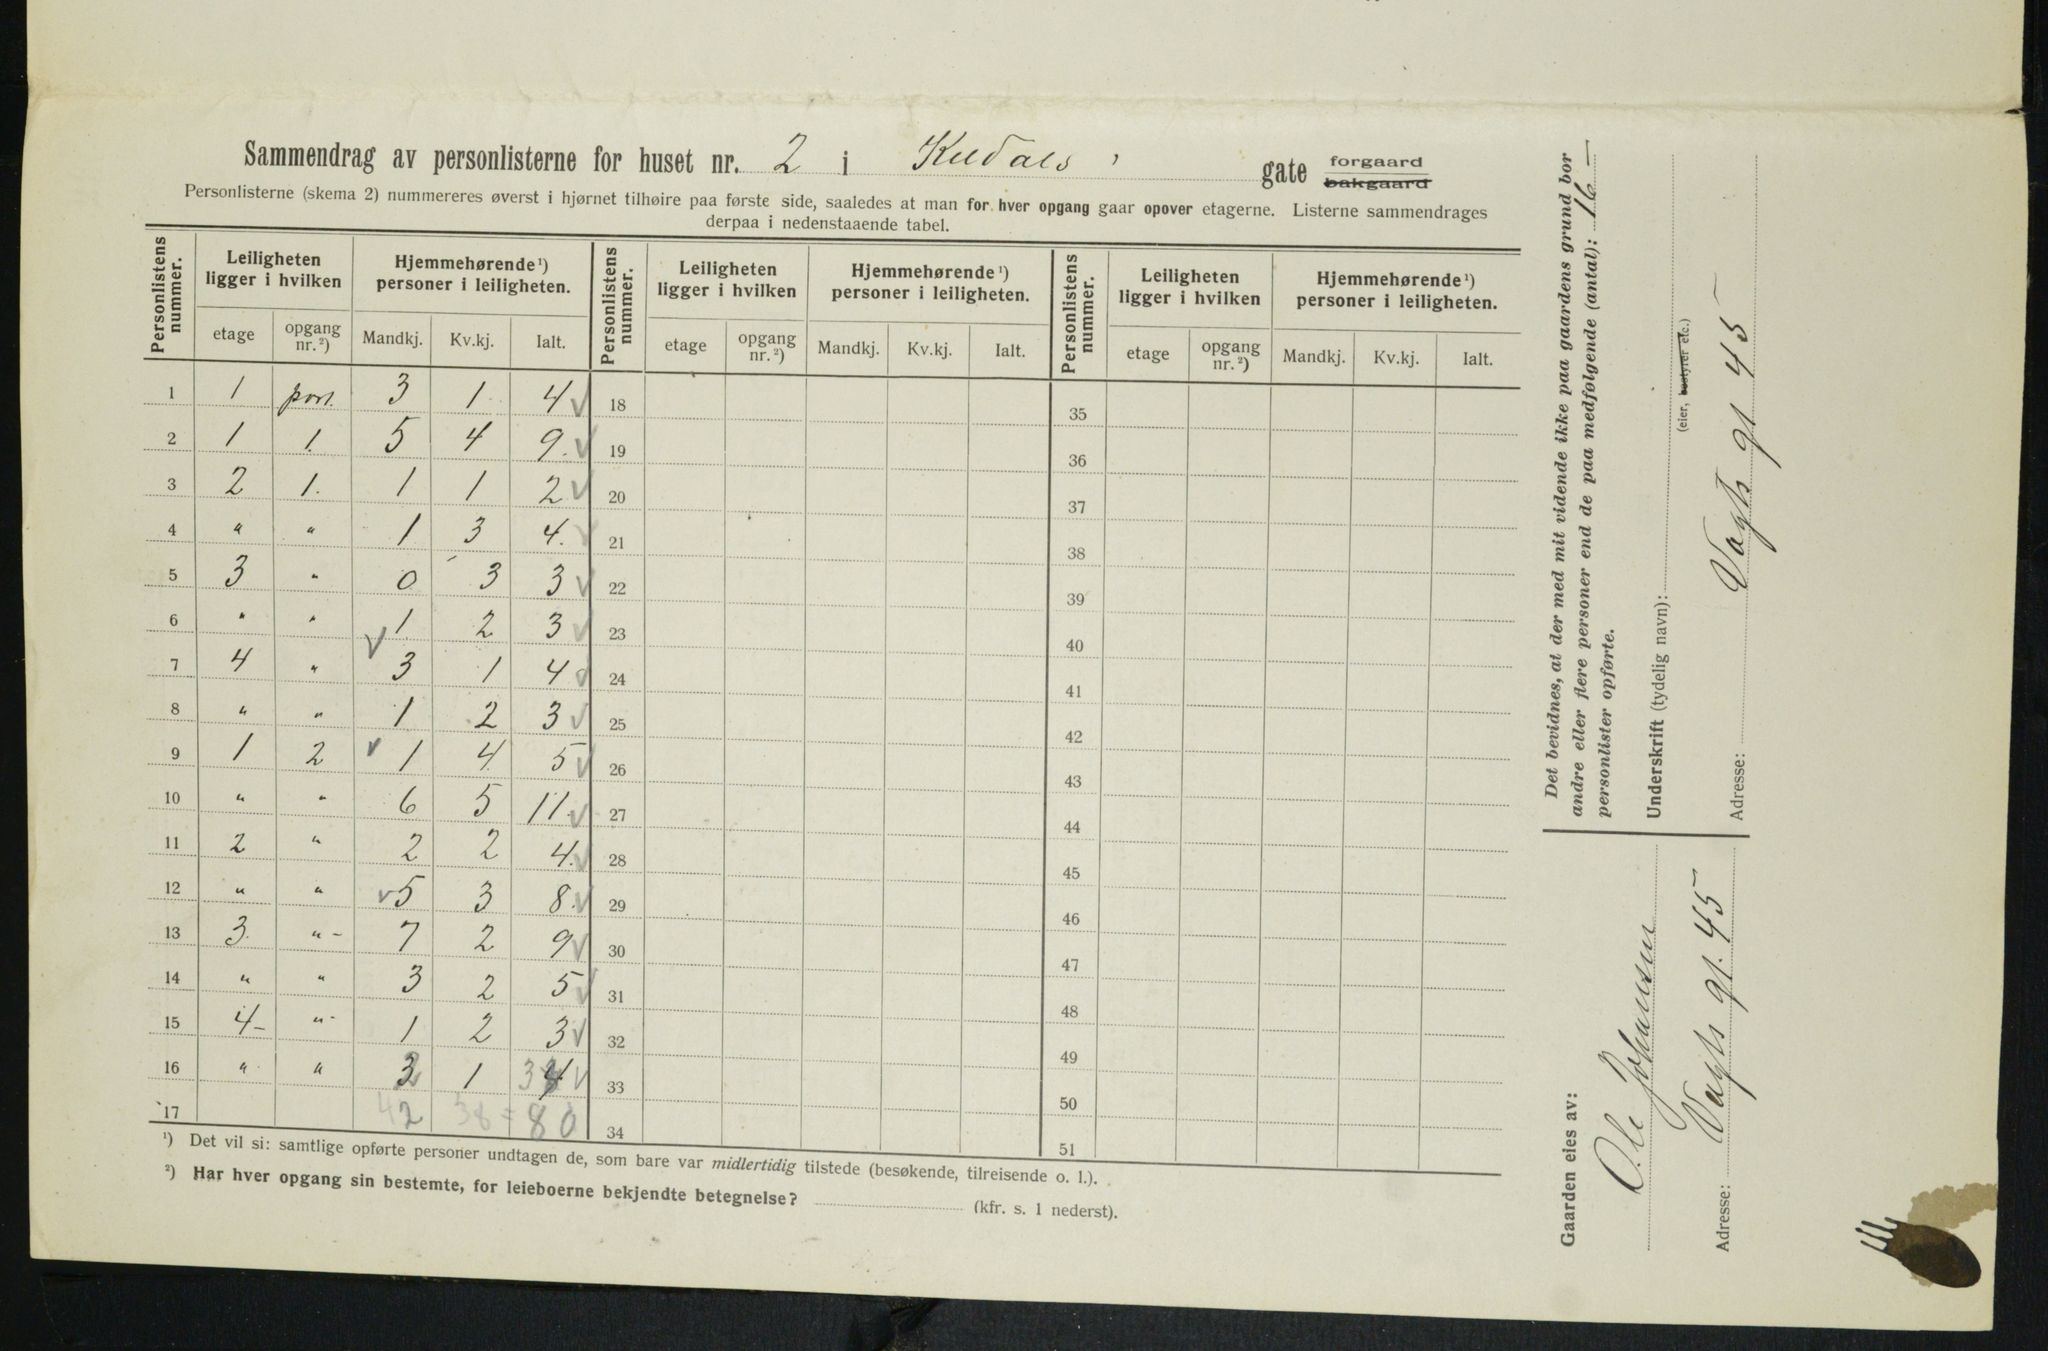 Sammendrag av personlisterne for huset nr. 2 i Kildals gate forgaard bakgaard
Personlisterne (skema 2) nummereres øverst i hjørnet tilhøire paa første side, saaledes at man for hver opgang gaar opover etagerne. Listerne sammendrages
derpaa i nedenstaaende tabel.
Personlistens nummer. Leiligheten ligger i hvilken Hjemmehørende ¹) personer i leiligheten. Personlistens nummer. Leiligheten ligger i hvilken Hjemmehørende ¹) personer i leiligheten. Personlistens nummer. Leiligheten ligger i hvilken Hjemmehørende ¹) personer i leiligheten.
etage opgang nr. ²) Mandkj. Kv.kj. Ialt. etage opgang nr. ²) Mandkj. Kv.kj. Ialt. etage opgang nr. ²) Mandkj. Kv.kj. Ialt.
1 1 port. 3 1 4 √ 18 35
2 1 1. 5 4 9. √ 19 36
3 2 1. 1 1 2 √ 20 37
4 " " 1 3 4. √ 21 38
5 3 " 0 3 3 √ 22 39
6 " " 1 2 3 √ 23 40
7 4 " √ 3 1 4 √ 24 41
8 " " 1 2 3 √ 25 42
9 1 2 √ 1 4 5 √ 26 43
10 " " 6 5 11 √ 27 44
11 2 " 2 2 4. √ 28 45
12 " " √ 5 3 8 √ 29 46
13 3. " - 7 2 9 √ 30 47
14 " " 3 2 5 √ 31 48
15 4 - " - 1 2 3 √ 32 49
16 " " 3 1 3 4 √ 33 50
17 42 38 = 80 34 51
¹) Det vil si: samtlige opførte personer undtagen de, som bare var midlertidig tilstede (besøkende, tilreisende o. l.).
²) Har hver opgang sin bestemte, for leieboerne bekjendte betegnelse? (kfr. s. 1 nederst).
Det bevidnes, at der med mit vidende ikke paa gaardens grund bor
andre eller flere personer end de paa medfølgende (antal): 16 —
personlister opførte.
Underskrift (tydelig navn):
(eier, bestyrer etc.)
Adresse: Vogts gt 45
Gaarden eies av:
Ole Johansen
Adresse: Vogts gt. 45